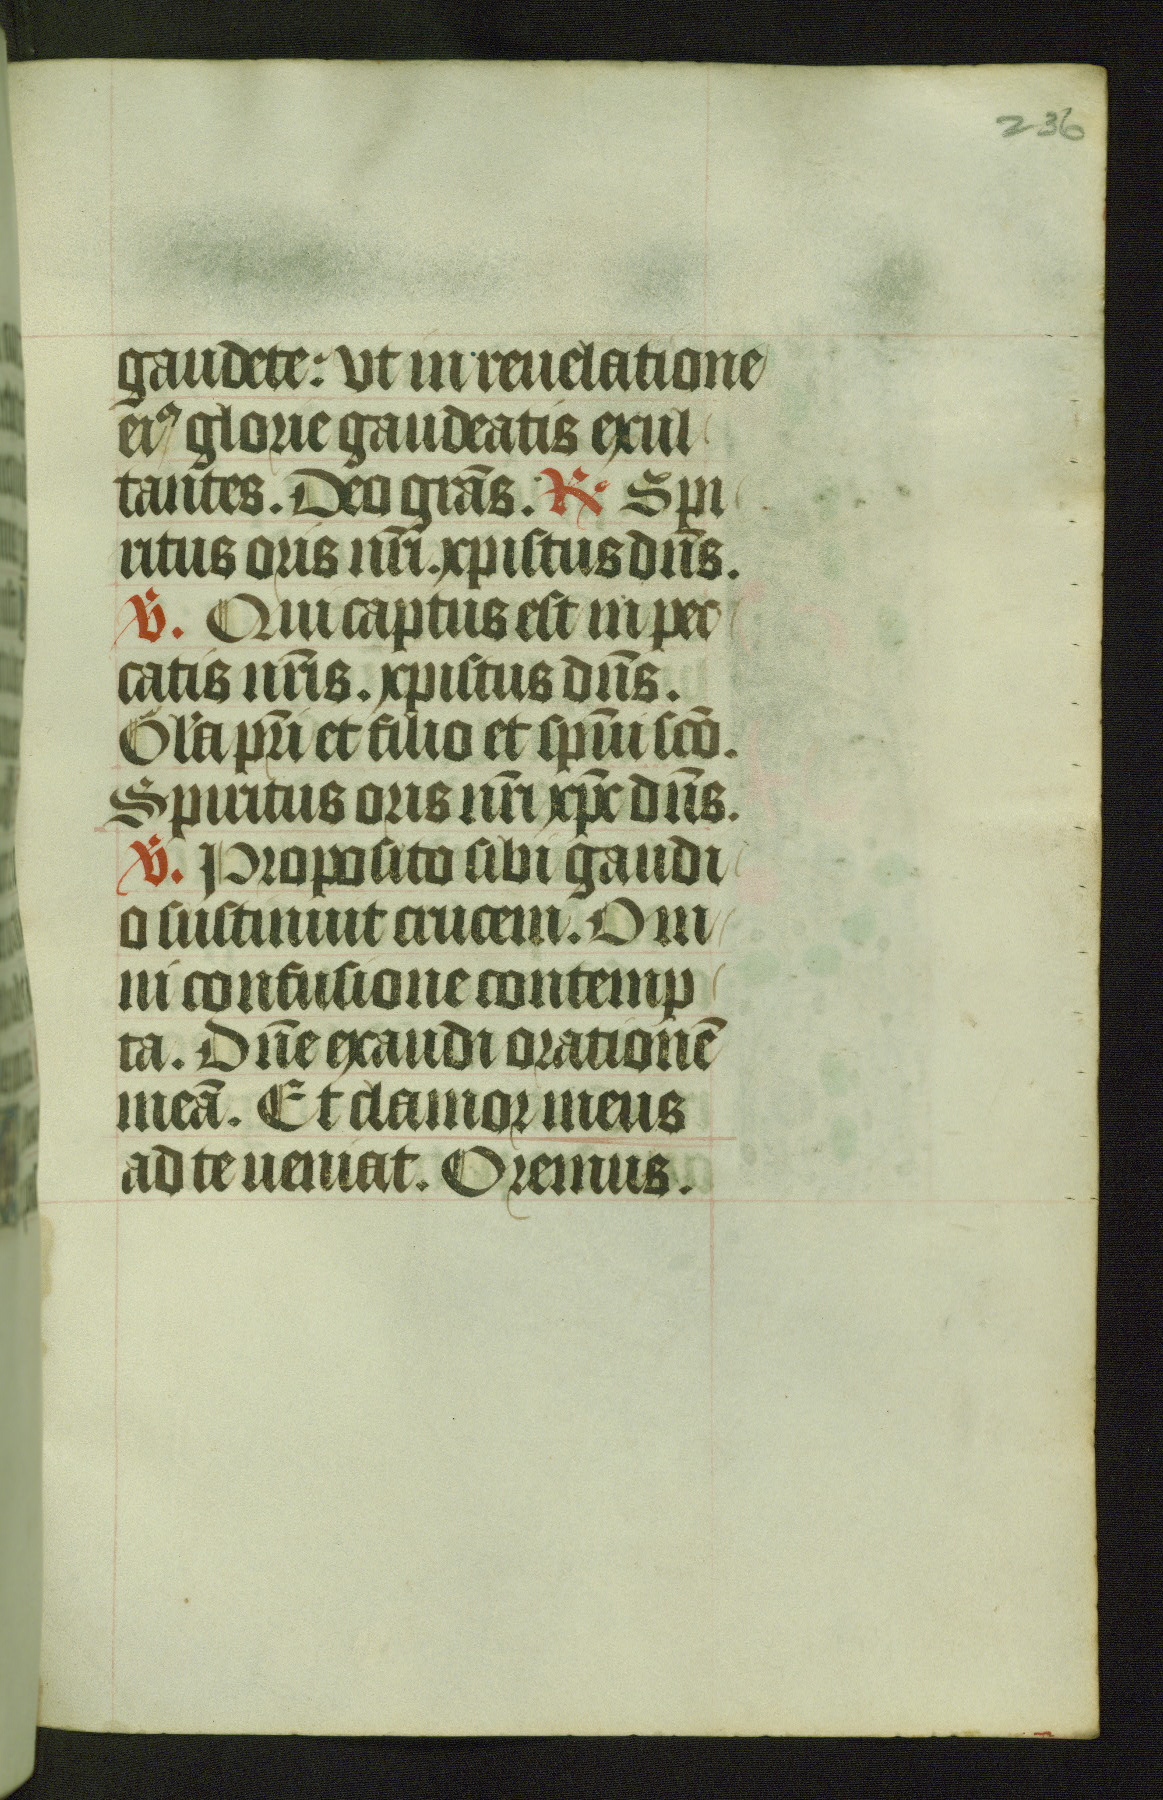 236
gaudete: vt in reuelatione
ei⁹ glorie gaudeatis exul
tantes. Deo grãs. R. Spi
ritus oris nr̃i. xpistus dñs.
V. Qui captus est in pec
catis nr̃is. xpistus dñs.
Gl'a pr̃i et filio et spũi scõ.
Spiritus oris nr̃i xp̃c dñs.
V. Proposito sibi gaudi
o sustinuit crucem. Om
ni confusione contemp
ta. Dñe exaudi orationẽ
meã. Et clamor meus
ad te ueniat. Oremus.